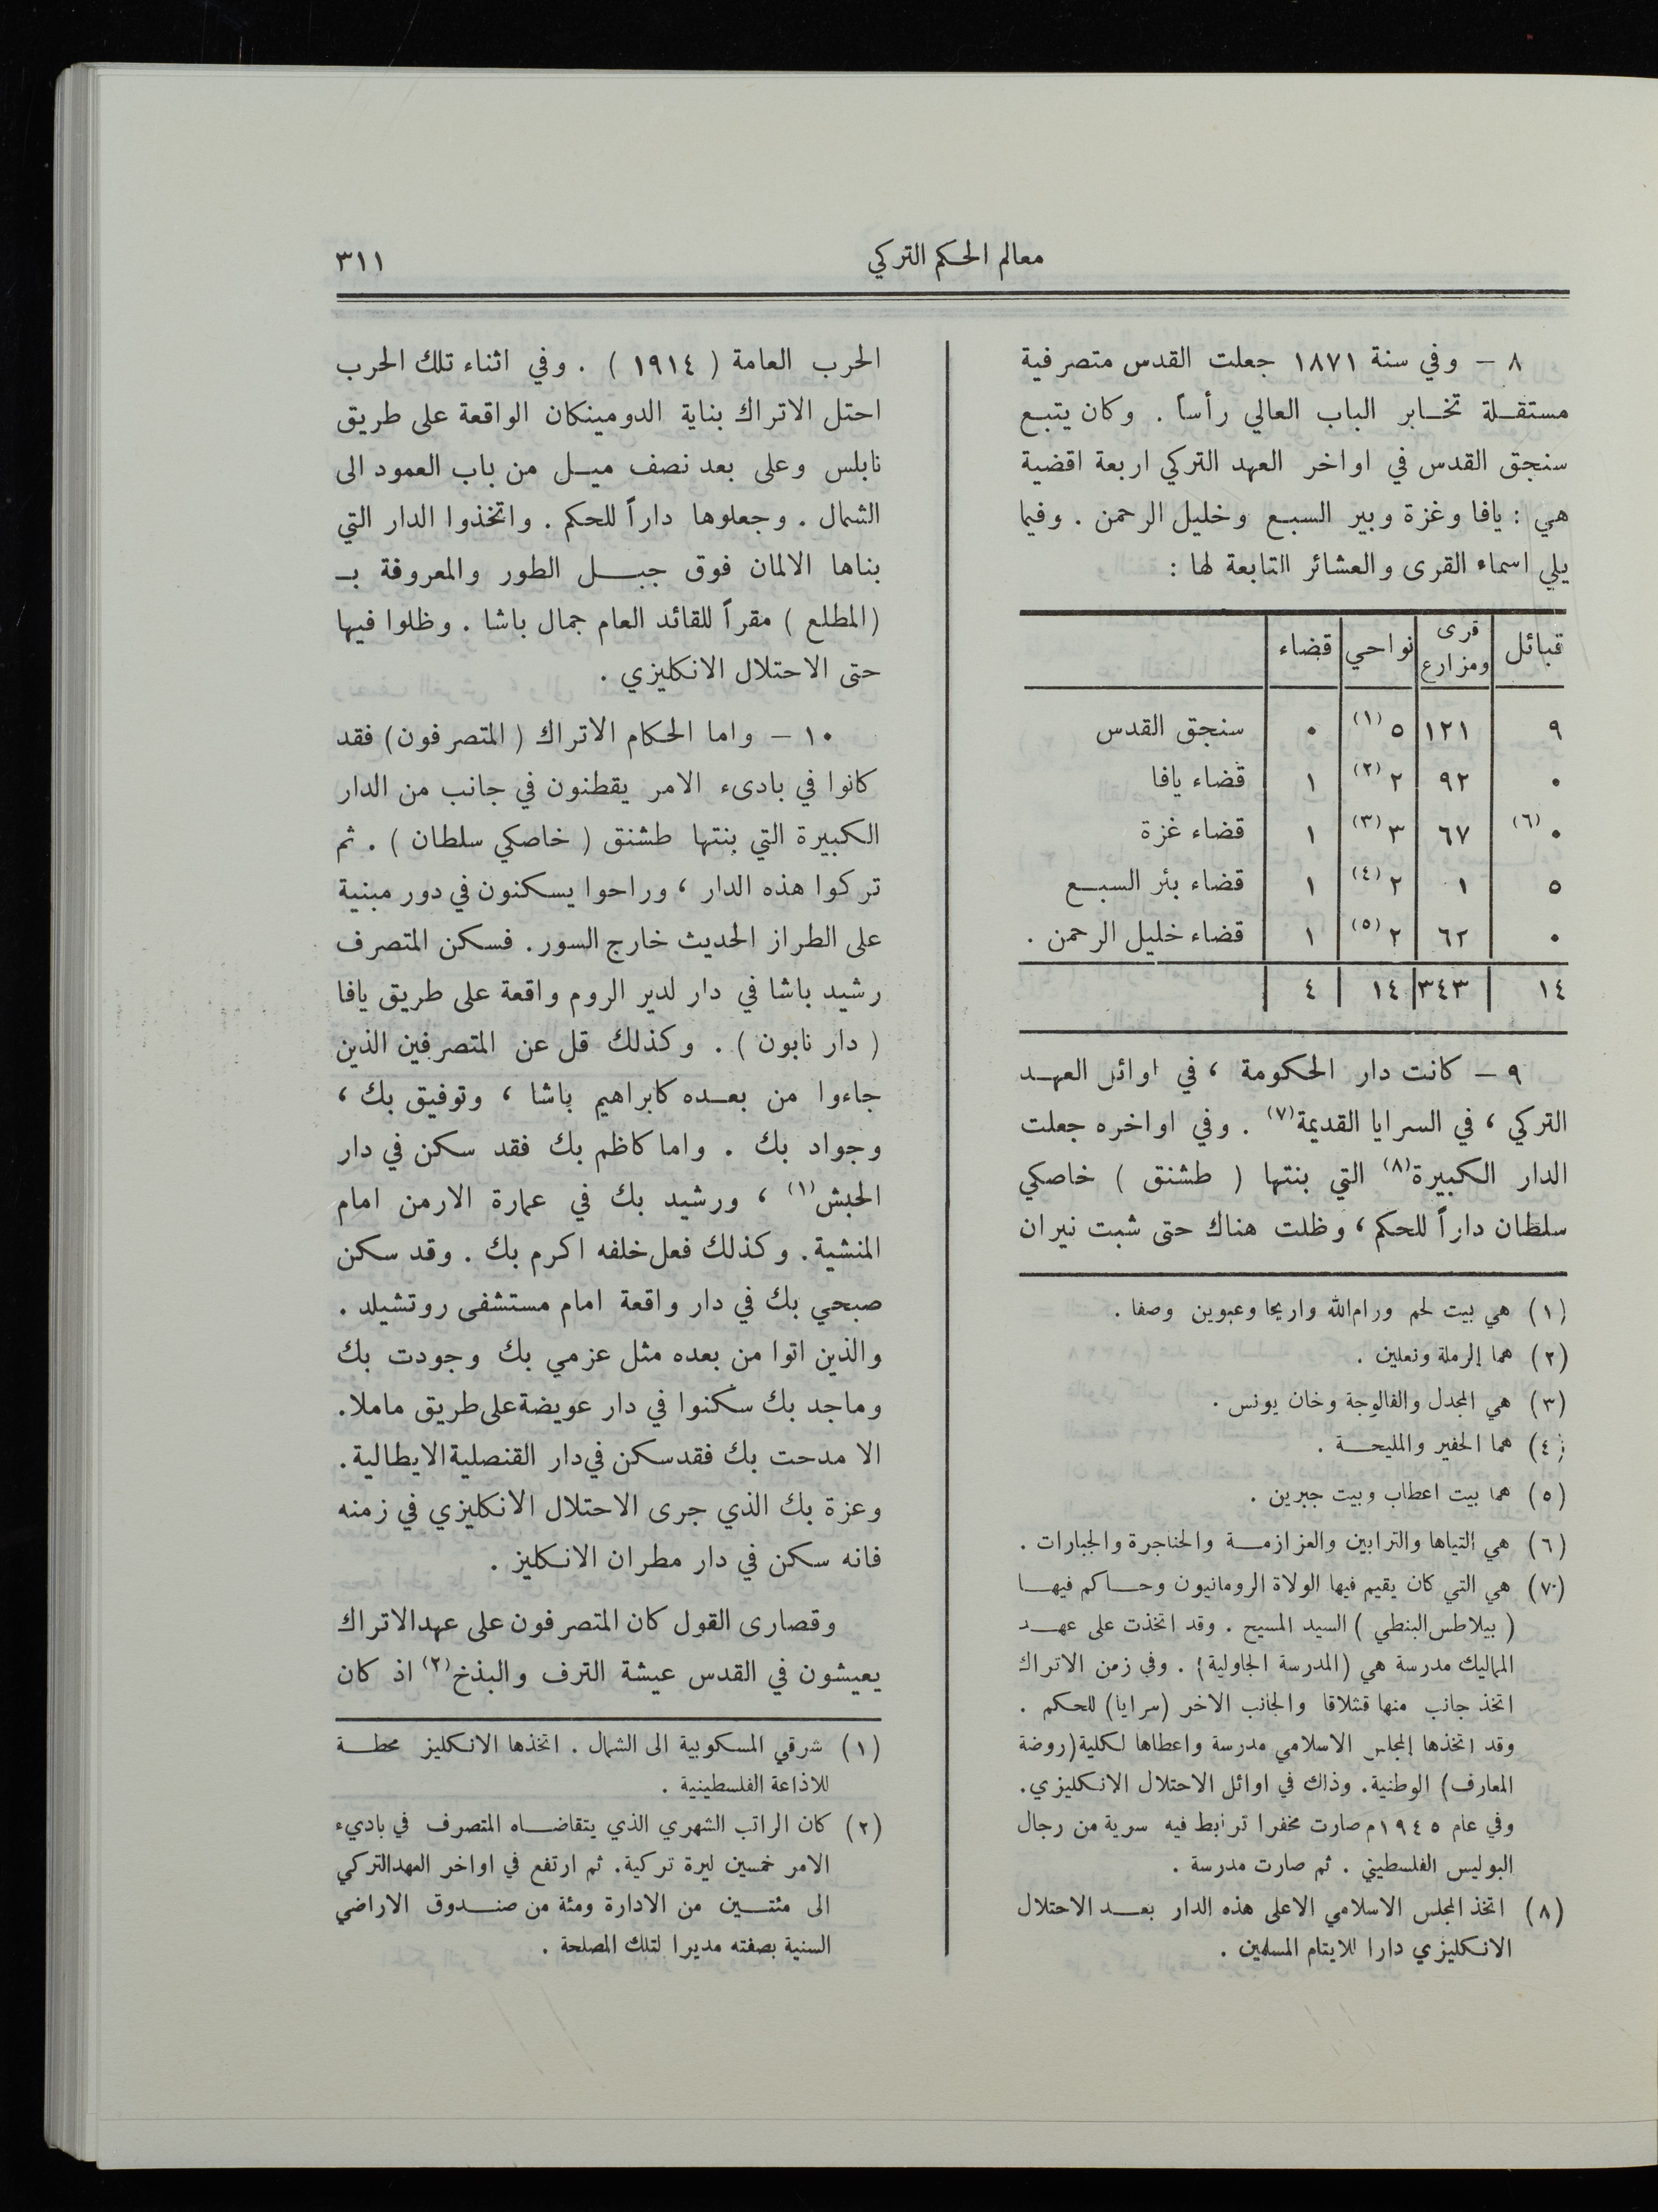 معالم الحكم التركي
٣١١
٨ – وفي سنة ١٨٧١ جعلت القدس متصرفية
مستقلة تخابر الباب العالي رأساً . وكان يتبع
سنجق القدس في اواخر العهد التركي اربعة اقضية
هي : يافا وغزة وبير السبع وخليل الرحمن . وفيما
يلي اسماء القرى والعشائر التابعة لها :
قبائل | قرى ومزارع | نواحي | قضاء
٩ | ١٢١ | ٥ (١) | ٠ | سنجق القدس
٠ | ٩٢ | ٢ (٢) | ١ | قضاء يافا
٠ (٦) | ٦٧ | ٣ (٣) | ١ | قضاء غزة
٥ | ١ | ٢ (٤) | ١ | قضاء بئر السبع
٠ | ٦٢ | ٢ (٥) | ١ | قضاء خليل الرحمن .
١٤ | ٣٤٣ | ١٤ | ٤
٩ – كانت دار الحكومة ، في اوائل العهد
التركي ، في السرايا القديمة (٧) . وفي اواخره جعلت
الدار الكبيرة (٨) التي بنتها ( طشنق ) خاصكي
سلطان داراً للحكم ، وظلت هناك حتى شبت نيران
(١) هي بيت لحم ورام الله واريحا وعبوين وصفا .
(٢) هما الرملة ونعلين .
(٣) هي المجدل والفالوجة وخان يونس .
(٤) هما الحفير والمليحة .
(٥) هما بيت اعطاب وبيت جبرين .
(٦) هي التياها والترابين والعزازمة والحناجرة والجبارات .
(٧) هي التي كان يقيم فيها الولاة الرومانيون وحاكم فيها
( بيلاطس البنطي ) السيد المسيح . وقد اتخذت على عهد
المماليك مدرسة هي (المدرسة الجاولية) . وفي زمن الاتراك
اتخذ جانب منها قشلاقا والجانب الاخر (سرايا) للحكم .
وقد اتخذها المجلس الاسلامي مدرسة واعطاها لكلية (روضة
المعارف) الوطنية. وذلك في اوائل الاحتلال الانكليزي.
وفي عام ١٩٤٥ م صارت مخفرا ترابط فيه سرية من رجال
البوليس الفلسطيني . ثم صارت مدرسة .
(٨) اتخذ المجلس الاسلامي الاعلى هذه الدار بعد الاحتلال
الانكليزي دارا للايتام المسلمين .
الحرب العامة ( ١٩١٤ ) . وفي اثناء تلك الحرب
احتل الاتراك بناية الدومينكان الواقعة على طريق
نابلس وعلى بعد نصف ميل من باب العمود الى
الشمال . وجعلوها داراً للحكم . واتخذوا الدار التي
بناها الالمان فوق جبل الطور والمعروفة بـ
(المطلع ) مقراً للقائد العام جمال باشا . وظلوا فيها
حتى الاحتلال الانكليزي .
١٠ – واما الحكام الاتراك ( المتصرفون) فقد
كانوا في بادىء الامر يقطنون في جانب من الدار
الكبيرة التي بنتها طشنق ( خاصكي سلطان ) . ثم
تركوا هذه الدار ، وراحوا يسكنون في دور مبنية
على الطراز الحديث خارج السور. فسكن المتصرف
رشيد باشا في دار لدير الروم واقعة على طريق يافا
( دار نابون ) . وكذلك قل عن المتصرفين الذين
جاءوا من بعده كابراهيم باشا ، وتوفيق بك ،
وجواد بك . واما كاظم بك فقد سكن في دار
الحبش (١) ، ورشيد بك في عمارة الارمن امام
المنشية. وكذلك فعل خلفه اكرم بك . وقد سكن
صبحي بك في دار واقعة امام مستشفى روتشيلد .
والذين اتوا من بعده مثل عزمي بك وجودت بك
وماجد بك سكنوا في دار عويضة على طريق ماملا.
الا مدحت بك فقد سكن في دار القنصلية الايطالية.
وعزة بك الذي جرى الاحتلال الانكليزي في زمنه
فانه سكن في دار مطران الانكليز .
وقصارى القول كان المتصرفون على عهد الاتراك
يعيشون في القدس عيشة الترف والبذخ (٢) اذ كان
(١) شرقي المسكوبية الى الشمال . اتخذها الانكليز محطة
للاذاعة الفلسطينية .
(٢) كان الراتب الشهري الذي يتقاضاه المتصرف في باديء
الامر خمسين ليرة تركية. ثم ارتفع في اواخر العهد التركي
الى مئتين من الادارة ومئة من صندوق الاراضي
السنية بصفته مديرا لتلك المصلحة .